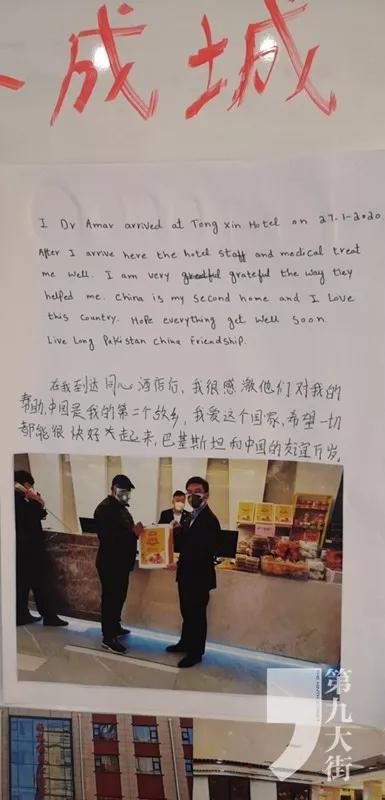 成城
I Dr Amar arrived at Tong Xin Hotel on 27-1-2020
After I arrive here the hotel staff and medical treat
me well. I am very grateful the way they
helped me. China is my second home and I Love
this country. Hope everything get well soon.
Live Long Pakistan China friendship.
在我到达同心酒店后，我很感激他们对我的
帮助，中国是我的第二个故乡，我爱这个国家，希望一切
都能很快好起来，巴基斯坦和中国的友谊万岁。
第九大街